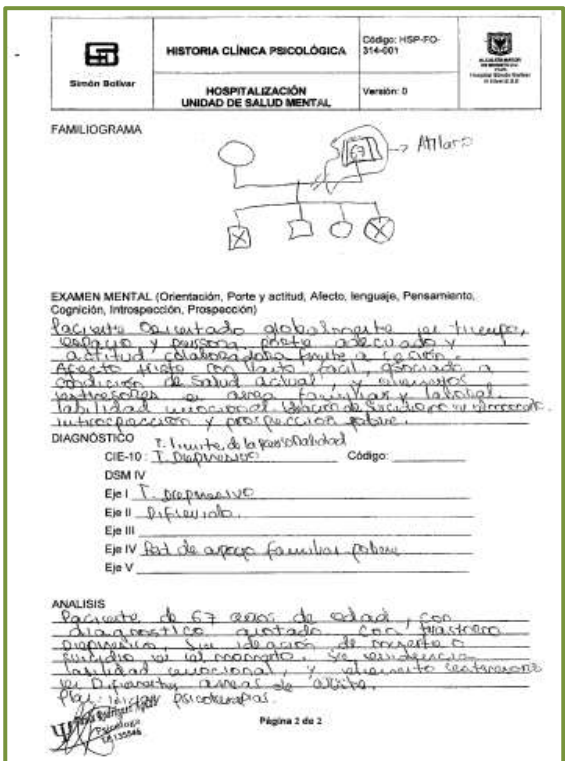 Simón Bolívar
HISTORIA CLÍNICA PSICOLÓGICA
HOSPITALIZACIÓN
UNIDAD DE SALUD MENTAL
Código: HSP-FO-
314-001
Versión: 0
FAMILIOGRAMA
67
EXAMEN MENTAL (Orientación, Porte y actitud, Afecto, lenguaje, Pensamiento,
Cognición, Introspección, Prospección)
Paciente Orientado globalmente en tiempo,
espacio y persona, porte adecuado y
actitud colaboradora frente a
Afecto triste con llanto facil, asociado a
condición de salud actual, y elementos
estresores en area familiar y laboral.
labilidad emocional. Ideación de suicidio no
introspección y prospección pobre.
DIAGNÓSTICO T. limite de la personalidad
CIE-10: T. Depresivo Código:
DSM IV
Eje I T. Depresivo
Eje II Diferido.
Eje III
Eje IV Red de apoyo familiar pobre
Eje V
ANALISIS
Paciente de 67 años de edad, con
diagnostico anotado con trastorno
Depresivo, Sin ideación de muerte o
suicidio en el momento. Se evidencia
labilidad emocional, y elemento
en Diferentes areas de
Plan: iniciar psicoterapias.
Psicóloga
Página 2 de 2